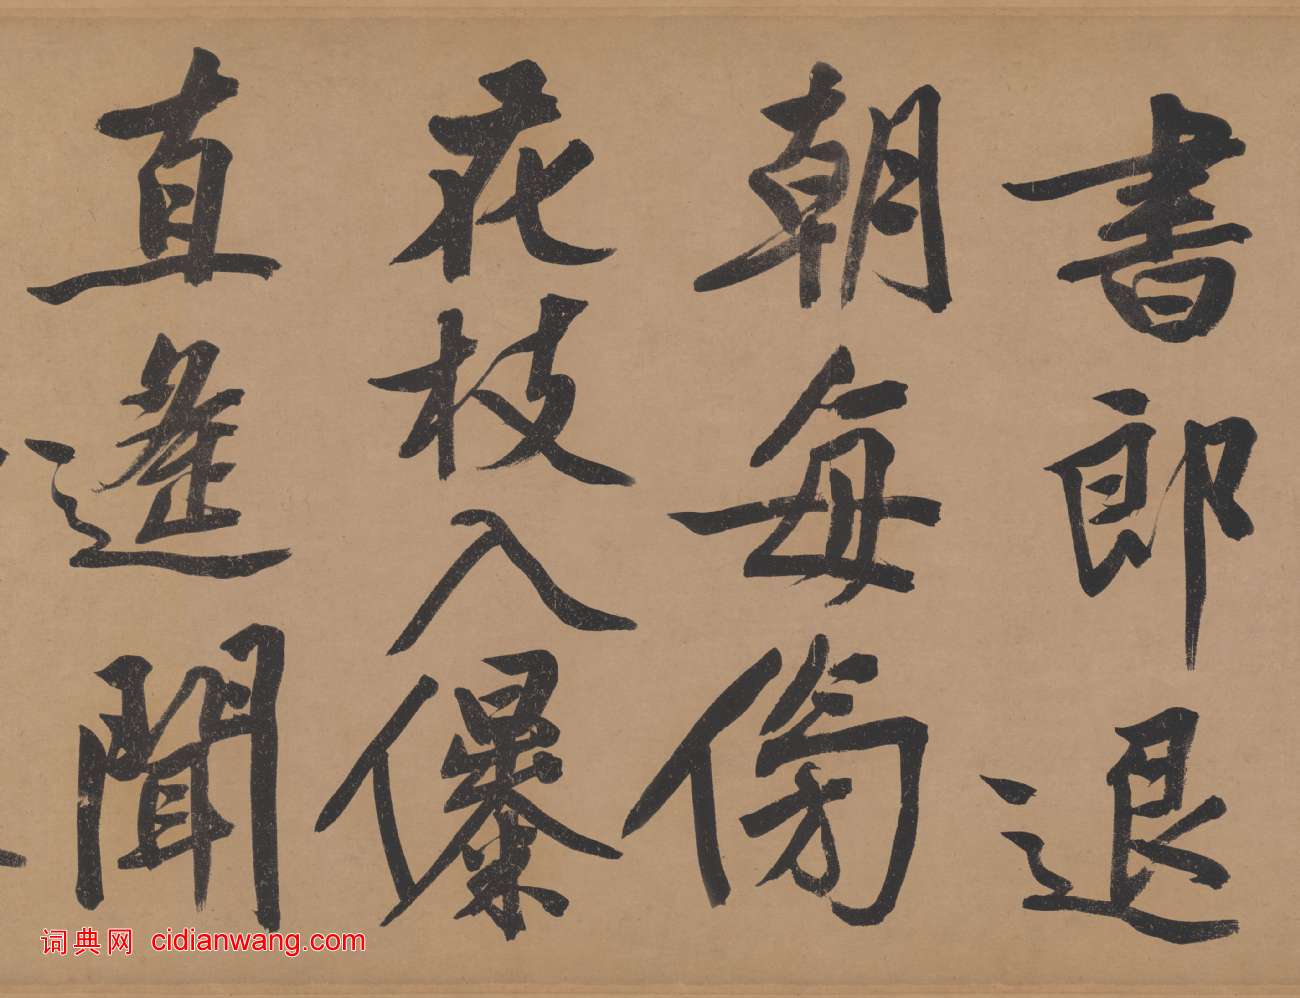 書郎退
朝每傍
花枝入儤
直遥聞
词典网 cidianwang.com